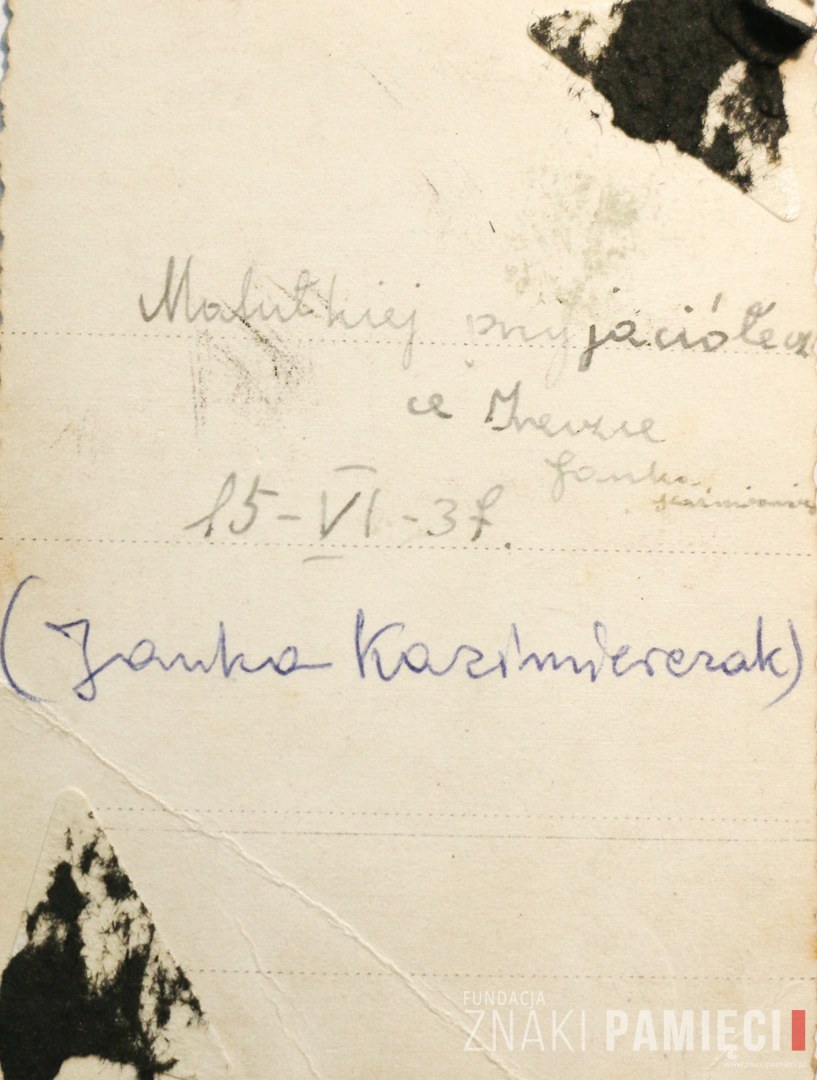 Malutkiej przyjaciółecz
ce Irence
Janka
15-VI-37.
(Janka Kazimierczak)
FUNDACJA
ZNAKI PAMIĘCI